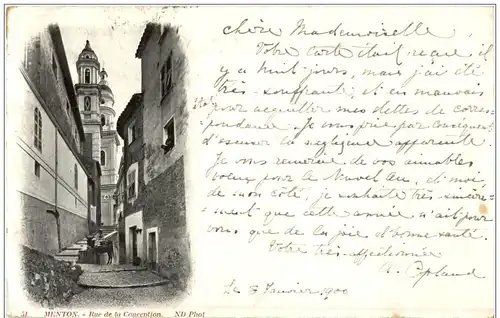 Chère Mademoiselle
Votre carte était reçue il
y a huit jours, mais j'ai été
très-souffrante, et en mauvais
pour acquitter mes dettes de corres-
pondance. Je vous prie par conséquent
d'excuser la négligence apparente.
Je vous remercie de vos aimables
vœux pour le Nouvel An, et moi,
de mon côté, je souhaite très-sincère-
ment que cette année n'ait pour
vous que de la joie et bonne santé.
Votre très-affectionnée
Copland
Le Janvier 1900
51 MENTON. - Rue de la Conception. ND Phot